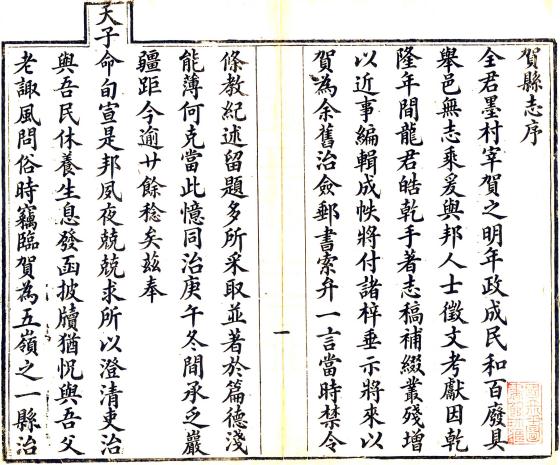 賀縣志序
全君墨村宰賀之明年政成民和百廢具
舉邑無志乘爰與邦人士徵文考獻因乾
隆年間龍君皓乾手著志稿補綴叢殘增
以近事編輯成帙將付諸梓垂示將來以
賀為余舊治僉郵書索弁一言當時禁令
一
條教紀述留題多所采取並著於篇德淺
能薄何克當此憶同治庚午冬間承乏巖
疆距今逾廿餘稔矣茲奉
天子命旬宣是邦夙夜兢兢求所以澄清吏治
與吾民休養生息發函披牘猶怳與吾父
老諏風問俗時竊臨賀為五嶺之一縣治